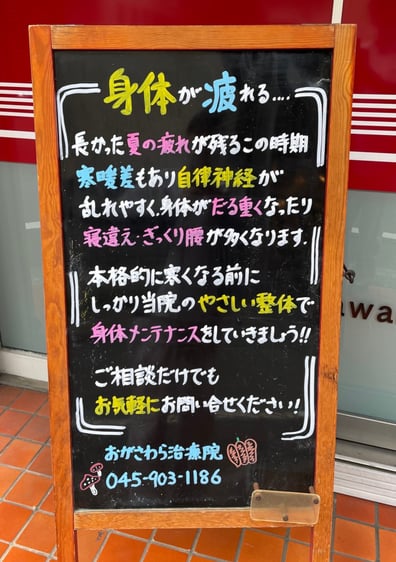 身体が疲れる....
長かった夏の疲れが残るこの時期
寒暖差もあり自律神経が
乱れやすく、身体がだる重くなったり
寝違え・ぎっくり腰が多くなります.
本格的に寒くなる前に
しっかり当院のやさしい整体で
身体メンテナンスをしていきましょう!!
ご相談だけでも
お気軽にお問い合せください!
おがさわら治療院
045-903-1186
awa